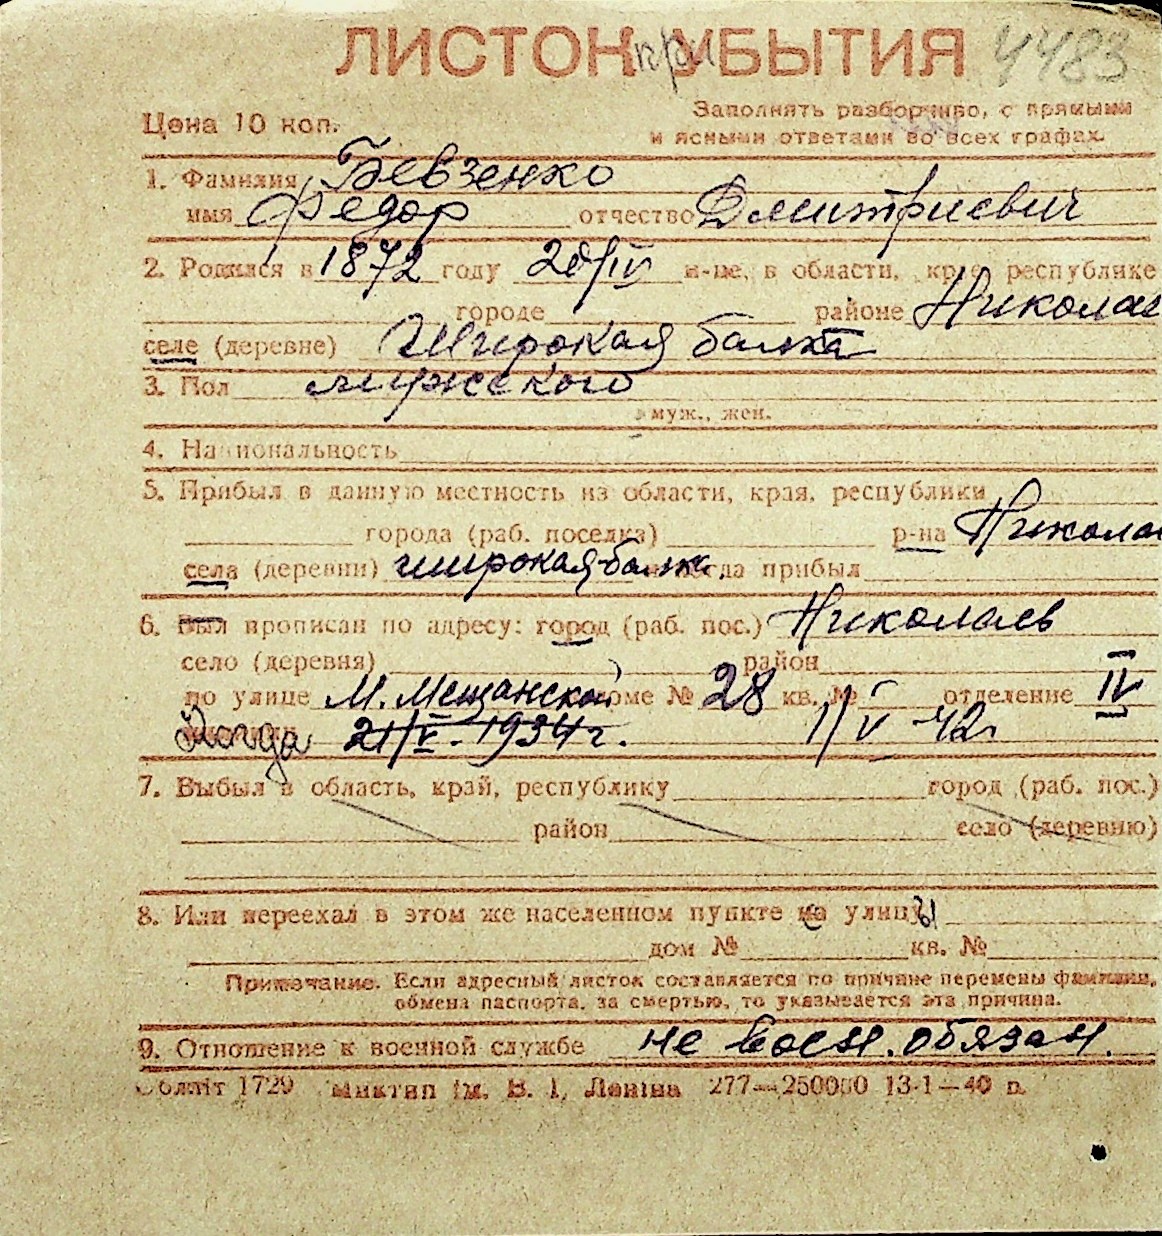 ЛИСТОК при УБЫТИЯ 4483
Цена 10 коп.
Заполнять разборчиво, с прямыми
и ясными ответами во всех графах.
1. Фамилия Бевзенко
имя Федор отчество Дмитриевич
2. Родился в 1872 году 20/IV м-це, в области, крае, республике
городе районе Николаев
селе (деревне) Широкая балка
3. Пол мужского
муж., жен.
4. Национальность
5. Прибыл в данную местность из области, края, республики
города (раб. поселка) р-на Никола
села (деревни) широкая балка когда прибыл
6. Был прописан по адресу: город (раб. пос.) Николаев
село (деревня) район
по улице М. Мещанской доме № 28 кв. № отделение IV
Когда 21/V. 1934 г. 1/V 42
7. Выбыл в область, край, республику город (раб. пос.)
район село (деревню)
8. Или переехал в этом же населенном пункте с улицы
дом № кв. №
Примечание. Если адресный листок составляется по причине перемены фамилии,
обмена паспорта, за смертью, то указывается эта причина.
9. Отношение к военной службе не воен. обязан.
Обліт 1729 Миктип ім. В. І. Леніна 277—250000 13-1—40 р.